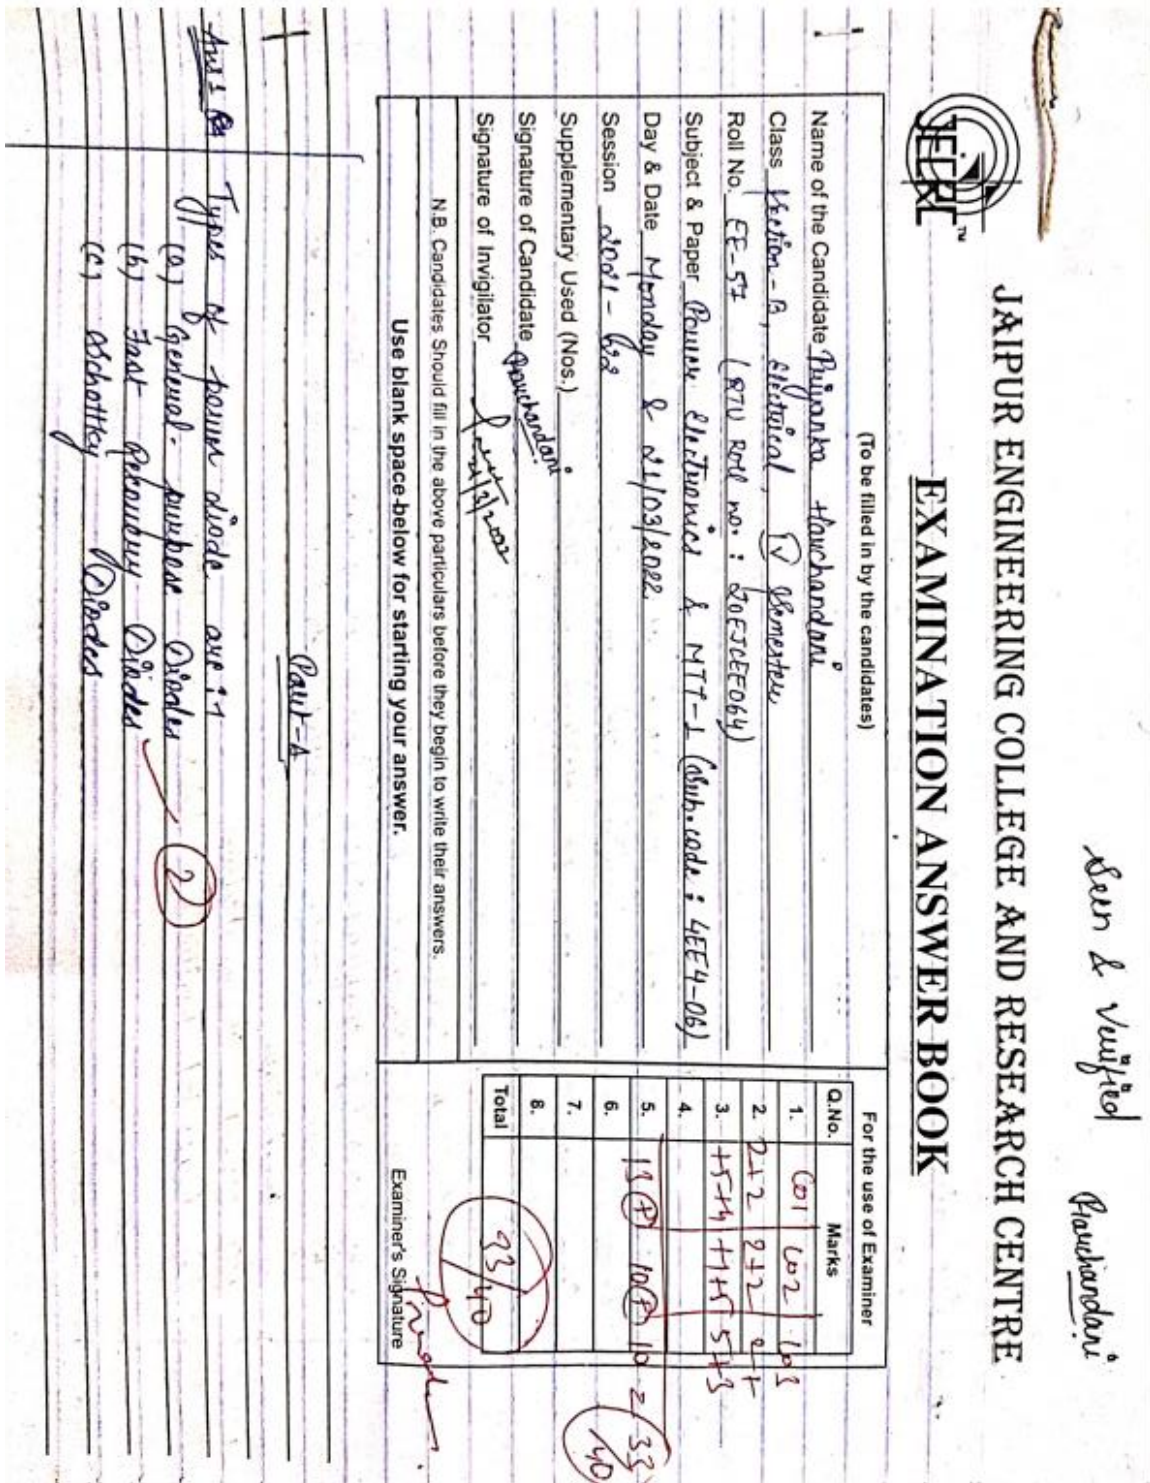 Seen & Verified Pravchandani
JAIPUR ENGINEERING COLLEGE AND RESEARCH CENTRE
JECRC TM
EXAMINATION ANSWER BOOK
(To be filled in by the candidates)
Name of the Candidate Priyanka Havchandani
Class Section-B, Electrical, IV Semester
Roll No. EE-57 (RTU Roll no. : 20EJCEE064)
Subject & Paper Power Electronics & MTT-1 (Sub.code : 4EE4-06)
Day & Date Monday & 21/03/2022
Session 2021-22
Supplementary Used (Nos.)
Signature of Candidate Pravchandani
Signature of Invigilator 21/3/2022
N.B. Candidates Should fill in the above particulars before they begin to write their answers.
Use blank space-below for starting your answer.
For the use of Examiner
Q.No. Marks
1. CO1 CO2 CO3
2. 2+2 2+2 2+
3. +5+4 +1+5 5+3
4.
5. 13 + 10 + 10 = 33/40
6.
7.
8.
Total 33/40
Examiner's Signature
Part-A
Ans 1 Types of power diode are :-
(a) General-purpose Diodes
(b) Fast Recovery Diodes
2
(c) Schottky Diodes